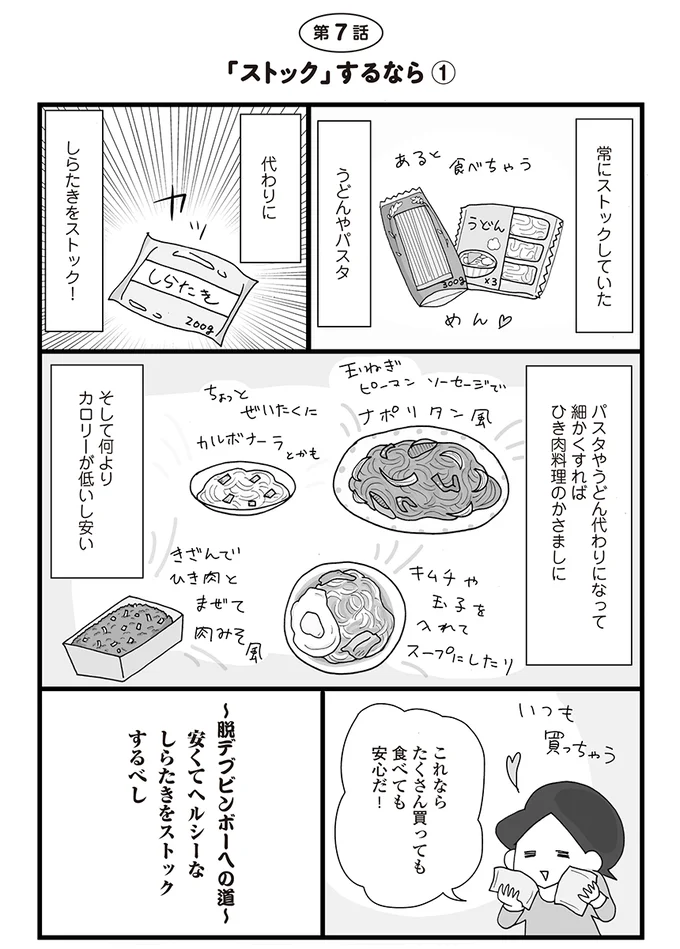 第7話
「ストック」するなら①
常にストックしていた
あると食べちゃう
うどん
×3
300g
めん♡
うどんやパスタ
代わりに
カッ
しらたき
200g
しらたきをストック！
パスタやうどん代わりになって
細かくすれば
ひき肉料理のかさましに
玉ねぎ
ピーマン ソーセージで
ナポリタン風
ちょっと
ぜいたくに
カルボナーラ
とかも
キムチや
玉子を
入れて
スープにしたり
きざんで
ひき肉と
まぜて
肉みそ風
そして何より
カロリーが低いし安い
いつも
買っちゃう
これなら
たくさん買っても
食べても
安心だ！
〜脱デブビンボーへの道〜
安くてヘルシーな
しらたきをストック
するべし